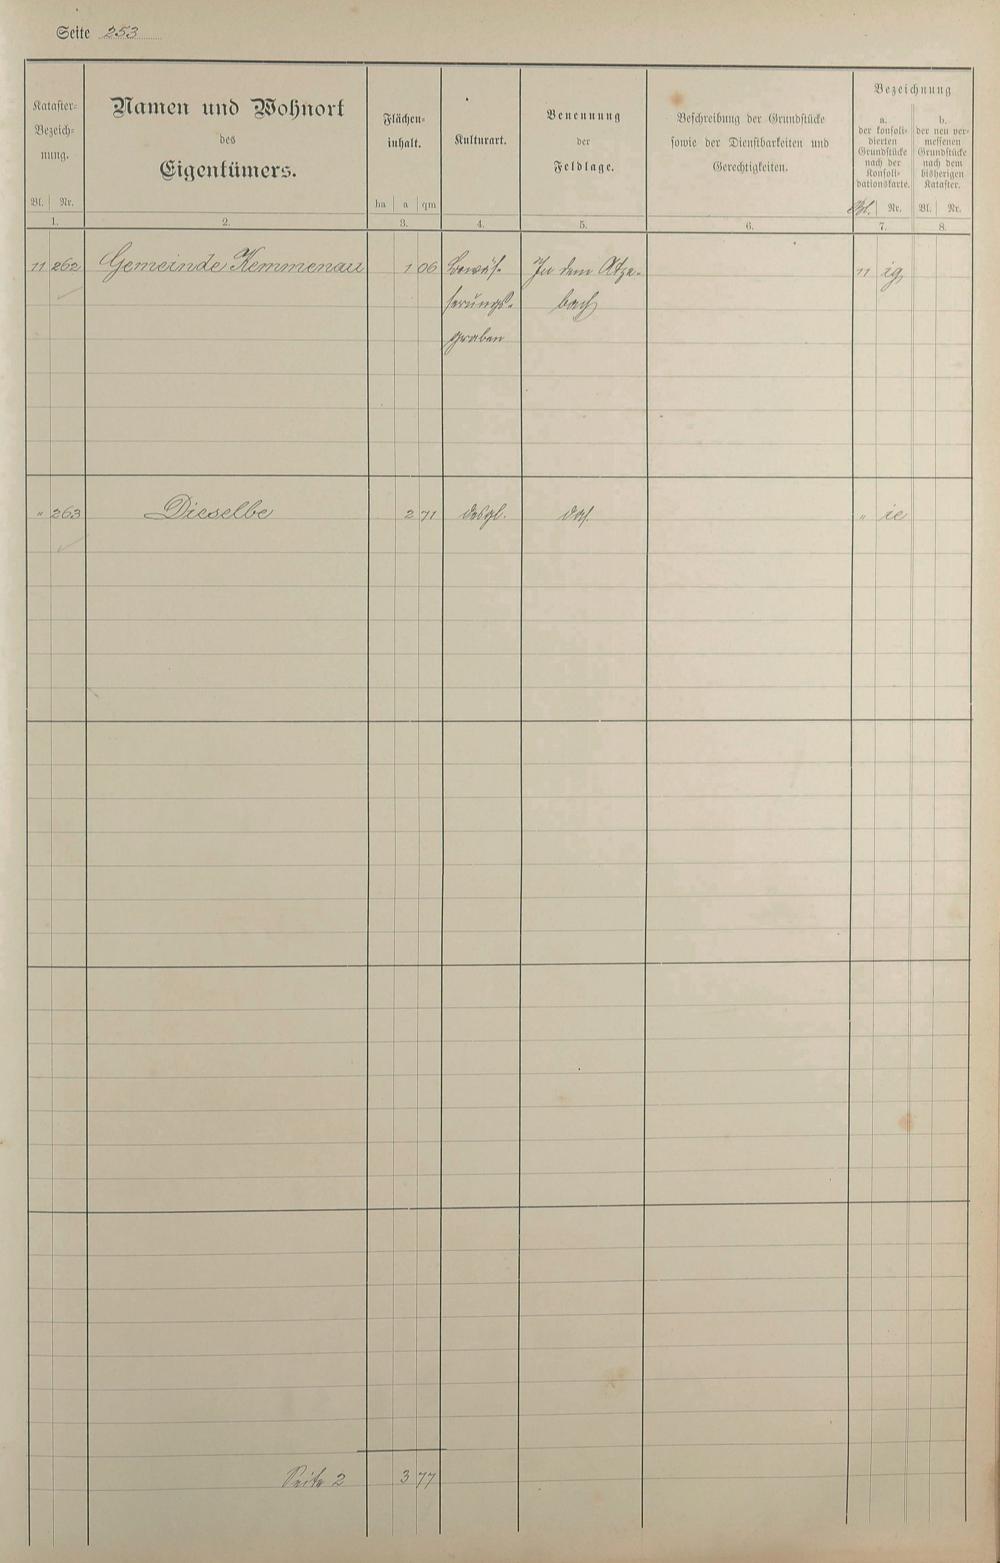 Seite 253
Kataster-
Bezeich-
nung.
Bl. Nr.
Namen und Wohnort
des
Eigentümers.
Flächen-
inhalt.
ha a qm
Kulturart.
Benennung
der
Feldlage.
Beschreibung der Grundstücke
sowie der Dienstbarkeiten und
Gerechtigkeiten.
Bezeichnung
a.
der konsoli-
dierten
Grundstücke
nach der
Konsoli-
dationskarte.
Bl. Nr.
b.
der neu ver-
messenen
Grundstücke
nach dem
bisherigen
Kataster.
Bl. Nr.
1. 2. 3. 4. 5. 6. 7. 8.
11 262 Gemeinde Kemmenau 1 06 Bewäs- In dem Atze- 11 ig
serungs- bach
graben
" 263 Dieselbe 2 71 desgl. das. " ie
Seite 2 3 77